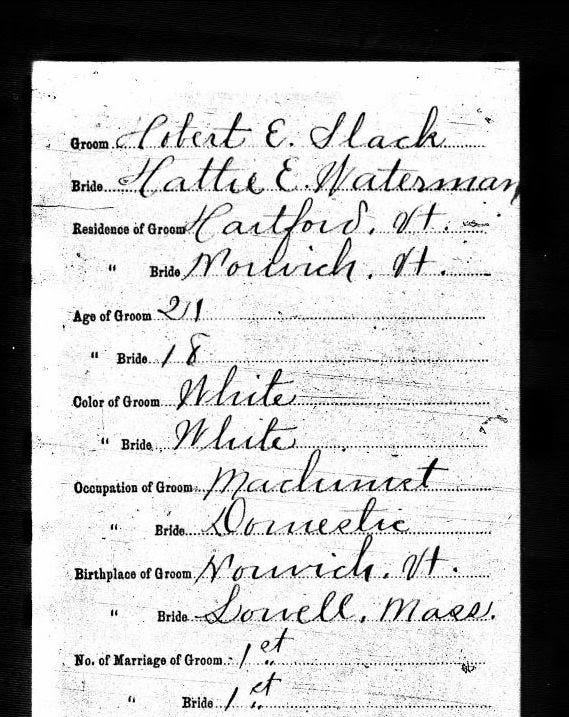 Groom Hobert E. Slack
Bride Hattie E. Waterman
Residence of Groom Hartford, Vt.
" Bride Norwich, Vt.
Age of Groom 21
" Bride 18
Color of Groom White
" Bride White
Occupation of Groom Machinist
" Bride Domestic
Birthplace of Groom Norwich, Vt.
" Bride Lowell, Mass.
No. of Marriage of Groom 1st
" Bride 1st